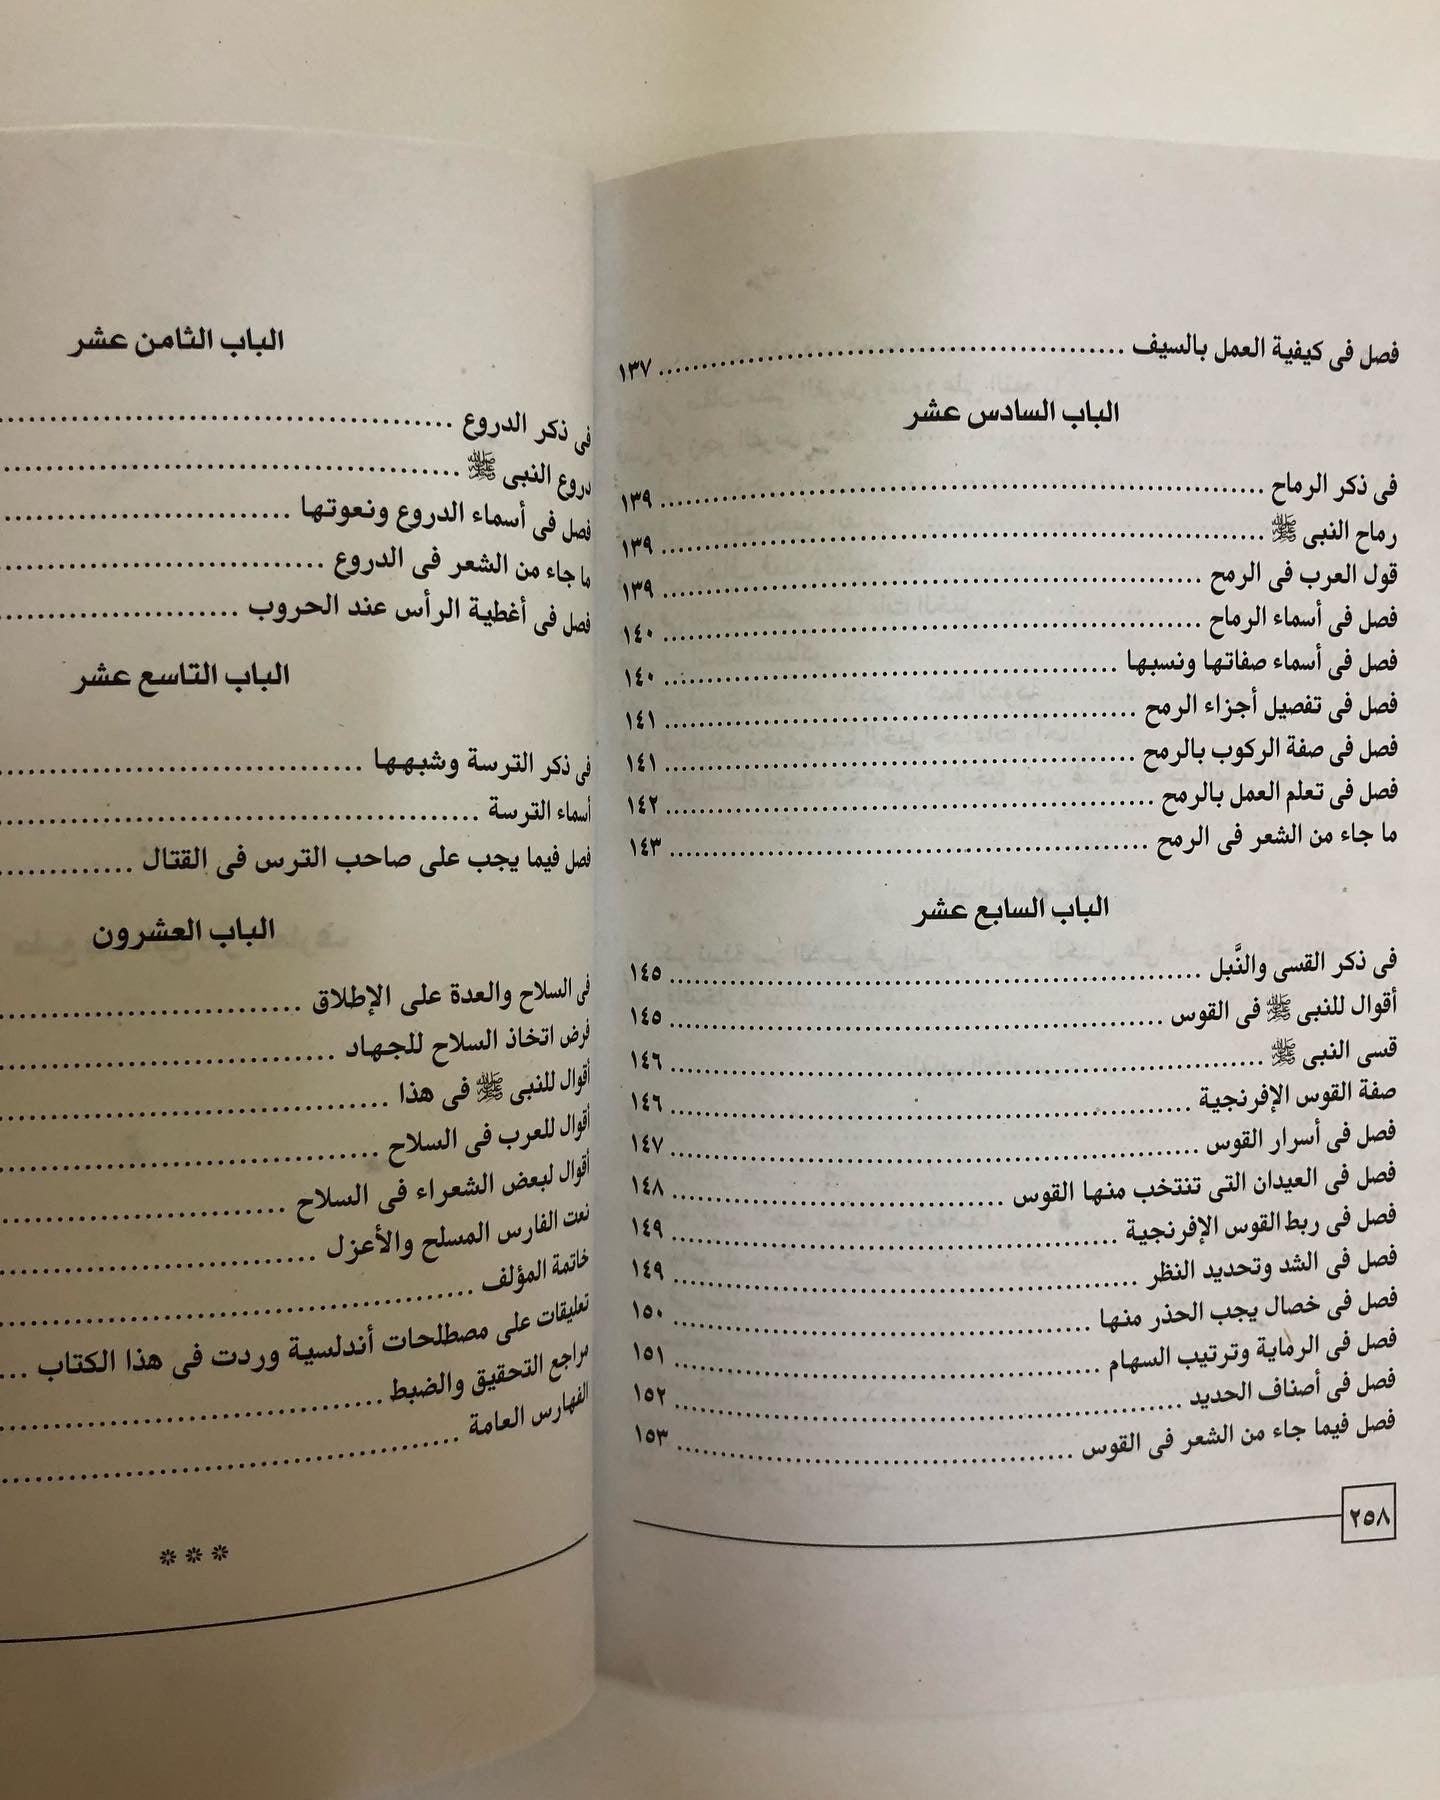 فصل فى كيفية العمل بالسيف ........ ١٣٧
الباب السادس عشر
فى ذكر الرماح ........ ١٣٩
رماح النبى ﷺ ........ ١٣٩
قول العرب فى الرمح ........ ١٣٩
فصل فى أسماء الرماح ........ ١٤٠
فصل فى أسماء صفاتها ونسبها ........ ١٤٠
فصل فى تفصيل أجزاء الرمح ........ ١٤١
فصل فى صفة الركوب بالرمح ........ ١٤١
فصل فى تعلم العمل بالرمح ........ ١٤٢
ما جاء من الشعر فى الرمح ........ ١٤٣
الباب السابع عشر
فى ذكر القسى والنَّبل ........ ١٤٥
أقوال للنبى ﷺ فى القوس ........ ١٤٥
قسى النبى ﷺ ........ ١٤٦
صفة القوس الإفرنجية ........ ١٤٦
فصل فى أسرار القوس ........ ١٤٧
فصل فى العيدان التى تنتخب منها القوس ........ ١٤٨
فصل فى ربط القوس الإفرنجية ........ ١٤٩
فصل فى الشد وتحديد النظر ........ ١٤٩
فصل فى خصال يجب الحذر منها ........ ١٥٠
فصل فى الرماية وترتيب السهام ........ ١٥١
فصل فى أصناف الحديد ........ ١٥٢
فصل فيما جاء من الشعر فى القوس ........ ١٥٣
٢٥٨
الباب الثامن عشر
فى ذكر الدروع ........
دروع النبى ﷺ ........
فصل فى أسماء الدروع ونعوتها ........
ما جاء من الشعر فى الدروع ........
فصل فى أغطية الرأس عند الحروب ........
الباب التاسع عشر
فى ذكر الترسة وشبهها ........
أسماء الترسة ........
فصل فيما يجب على صاحب الترس فى القتال ........
الباب العشرون
فى السلاح والعدة على الإطلاق ........
فرض اتخاذ السلاح للجهاد ........
أقوال للنبى ﷺ فى هذا ........
أقوال للعرب فى السلاح ........
أقوال لبعض الشعراء فى السلاح ........
نعت الفارس المسلح والأعزل ........
خاتمة المؤلف ........
تعليقات على مصطلحات أندلسية وردت فى هذا الكتاب ...
مراجع التحقيق والضبط ........
الفهارس العامة ........
***